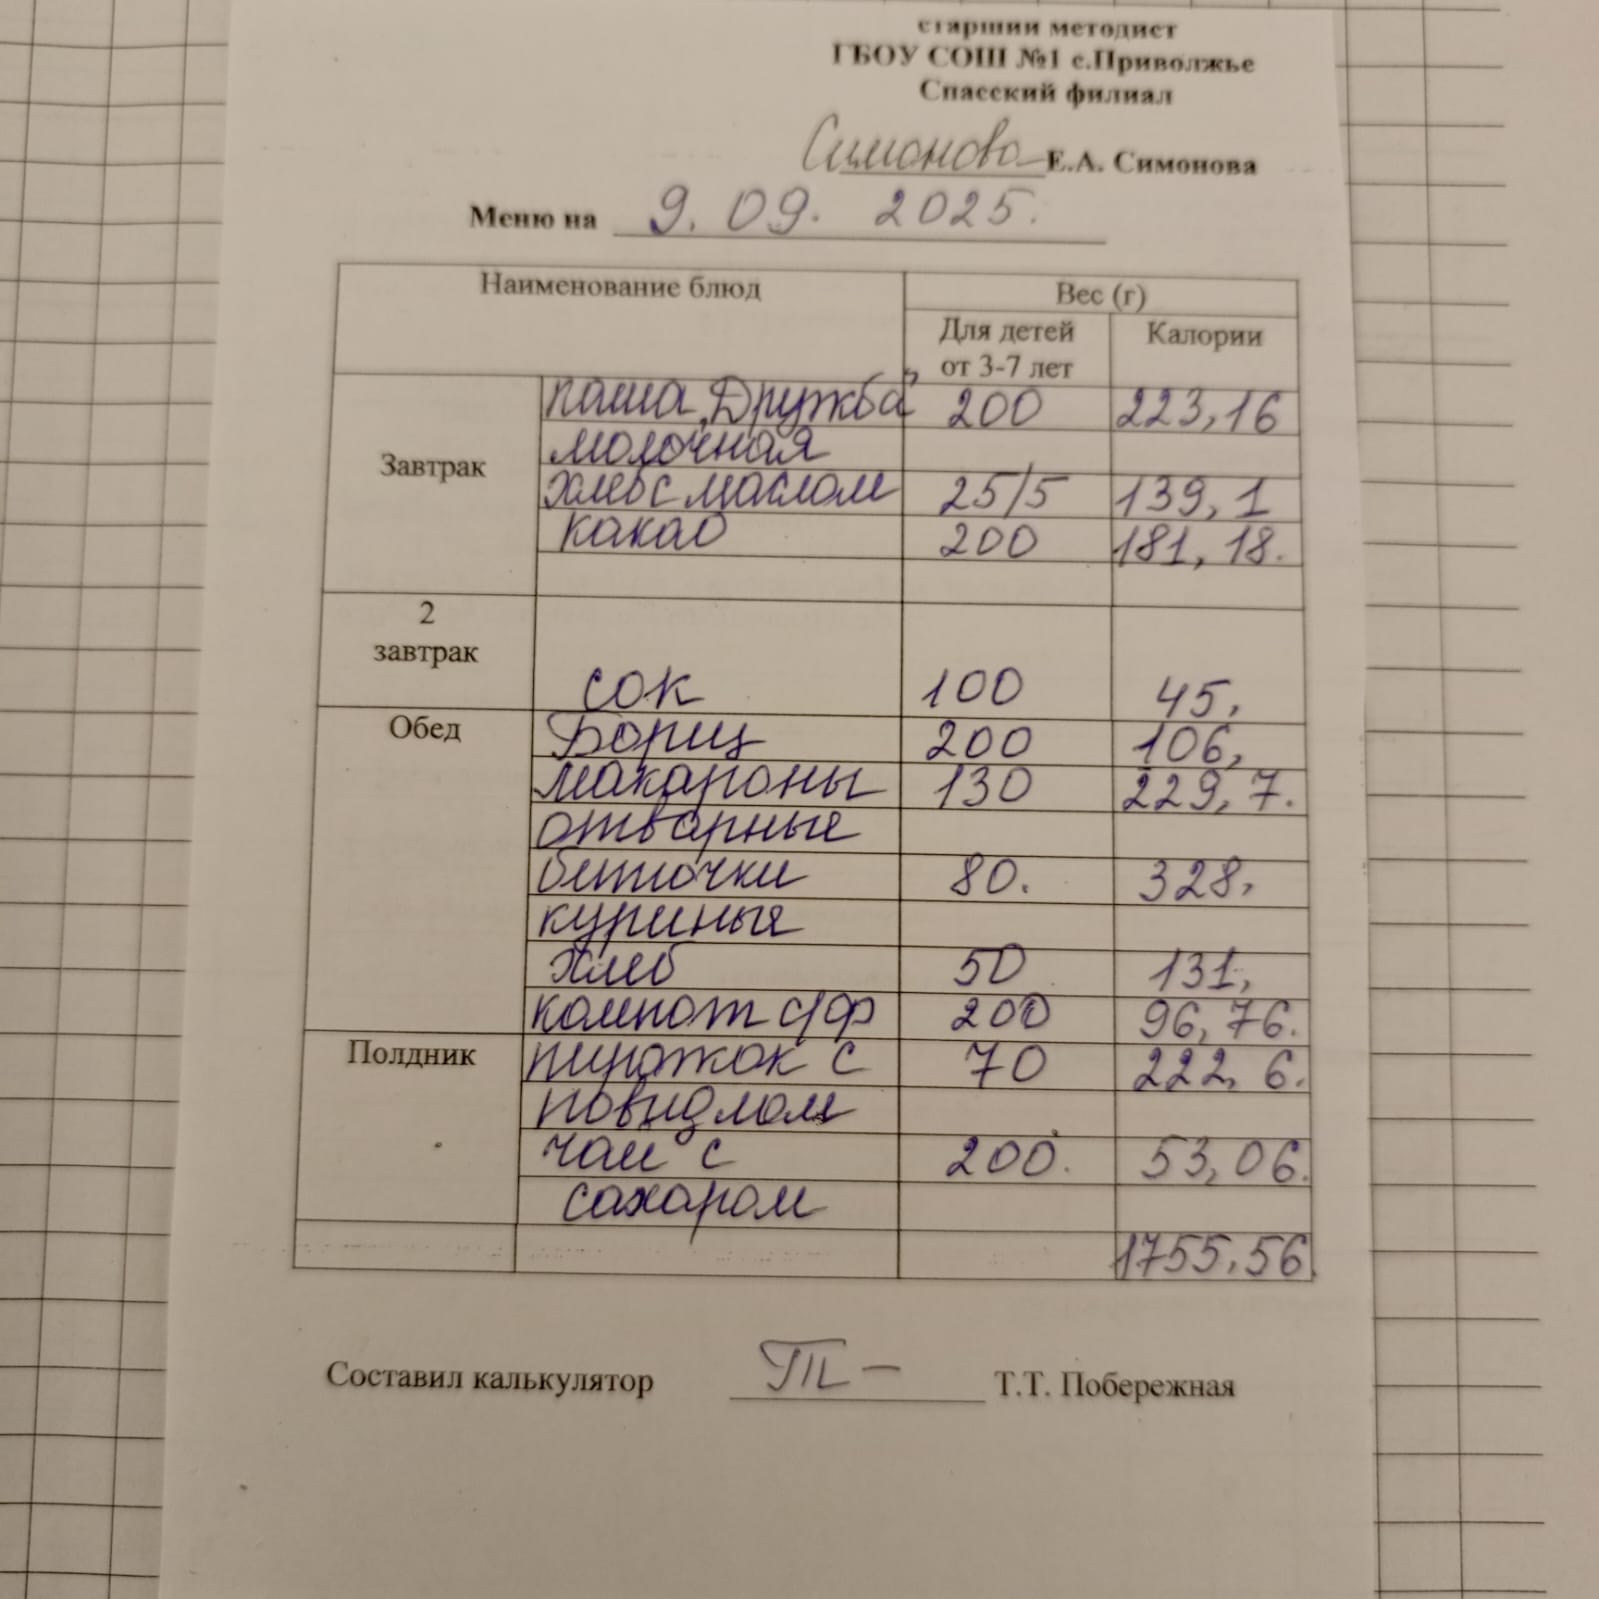 старший методист
ГБОУ СОШ №1 с.Приволжье
Спасский филиал
Симонова Е.А. Симонова
Меню на 9.09. 2025.
Наименование блюд
Вес (г)
Для детей от 3-7 лет
Калории
Завтрак
каша „Дружба" 200 223,16
молочная
хлеб с маслом 25/5 139,1
какао 200 181,18.
2 завтрак
сок 100 45,
Обед
Борщ 200 106,
макароны 130 229,7.
отварные
биточки 80. 328,
куриные
хлеб 50 131,
компот с/ф 200 96,76.
Полдник
пирожок с 70 222,6.
повидлом
чай с 200. 53,06.
сахаром
1755,56.
Составил калькулятор Т.Т. Побережная